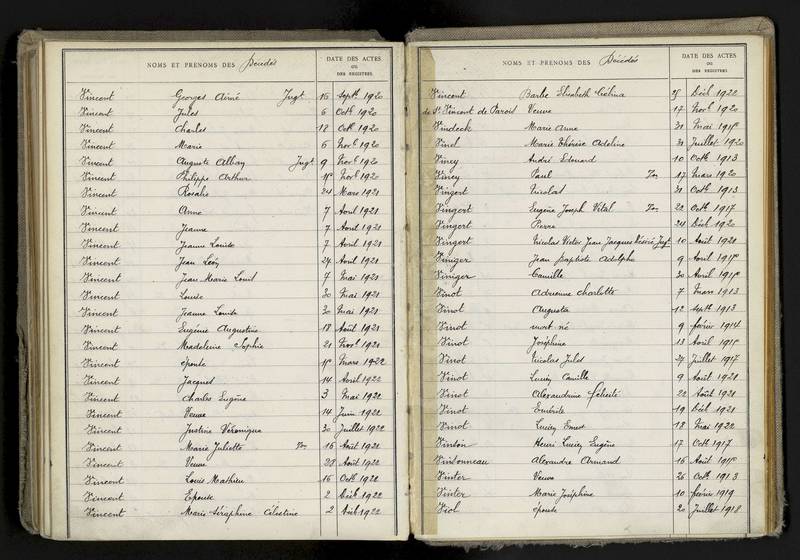 NOMS ET PRENOMS DES Décédés
DATE DES ACTES
OU
DES REGISTRES
Vincent Georges Aimé Jugt 16 Septb 1920
Vincent Jules 6 Octb 1920
Vincent Charles 18 Octb 1920
Vincent Marie 6 Novb 1920
Vincent Auguste Alban Jugt 9 Novb 1920
Vincent Philippe Arthur Novb 1920
Vincent Rosalie 24 Mars 1921
Vincent Anne 7 Avril 1921
Vincent Jeanne 7 Avril 1921
Vincent Jeanne Louise 7 Avril 1921
Vincent Jean Léon 24 Avril 1921
Vincent Jean Marie Louis 7 Mai 1921
Vincent Louise 30 Mai 1921
Vincent Jeanne Louise 30 Mai 1921
Vincent Eugénie Augustine 18 Août 1921
Vincent Madeleine Sophie 21 Novb 1921
Vincent épouse Mars 1922
Vincent Jacques 14 Avril 1922
Vincent Charles Eugène 3 Mai 1922
Vincent Veuve 14 Juin 1922
Vincent Justine Véronique 30 Juillet 1922
Vincent Marie Juliette 16 Août 1922
Vincent Veuve 28 Août 1922
Vincent Louis Mathieu 16 Octb 1922
Vincent Epouse 2 Décb 1922
Vincent Marie Séraphine Célestine 2 Décb 1922
NOMS ET PRENOMS DES Décédés
DATE DES ACTES
OU
DES REGISTRES
Vincent Barbe Elisabeth Célina Décb 1922
de St Vincent de Paroid Veuve 17 Novb 1920
Vindeck Marie Anne 31 Mai
Vinel Marie Thérèse Adeline 31 Juillet 1920
Viney André Edouard 10 Octb 1913
Viney Paul 17 Mars 1920
Vingert Nicolas 31 Octb 1913
Vingert Eugène Joseph Vital 22 Octb 1917
Vingert Pierre 24 Déc b 1920
Vingert Nicolas Victor Jean Jacques Désiré Jugt 10 Août 1921
Viniger Jean Baptiste Adolphe 9 Avril
Viniger Camille 30 Avril
Vinot Adrienne Charlotte 7 Mars 1913
Vinot Augusta 12 Septb 1913
Vinot mort né 9 février 1914
Vinot Joséphine 13 Avril
Vinot Nicolas Jules 27 Juillet 1917
Vinot Lucien Camille 9 Août 1921
Vinot Alexandrine Félicité 22 Août 1921
Vinot Emérite 19 Déc b 1921
Vinot Lucien Ernest 18 Mai 1922
Vinton Henri Lucien Eugène 17 Octb 1917
Vintonneau Alexandre Armand 16 Août
Vinter Veuve 26 Octb 1913
Vinter Marie Joséphine 10 février 1919
Viol épouse 20 Juillet 1918